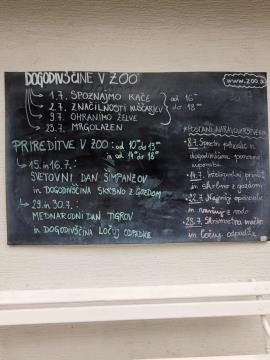 DOGODIVŠČINE V ZOO
www.zoo.si
1.7. SPOZNAJMO KAČE
2.7. ZNAČILNOSTI KUŠČARJEV
9.7. OHRANIMO ŽELVE
23.7. MRGOLAZEN
od 16
do 18
PRIREDITVE V ZOO: od 10 do 13
in od 14 do 18
15. in 16.7.:
SVETOVNI DAN ŠIMPANZOV
in DOGODIVŠČINA SKRBNO Z GOZDOM
29. in 30.7.:
MEDNARODNI DAN TIGROV
in DOGODIVŠČINA LOČUJ ODPADKE
8.7. Spretni
dogodivščina ponovna
uporaba
14.7. Inteligentni
in skrbno z gozdom
22.7.
in varčuj z vodo
28.7. Skrivnostna mačke
in Ločuj odpadke